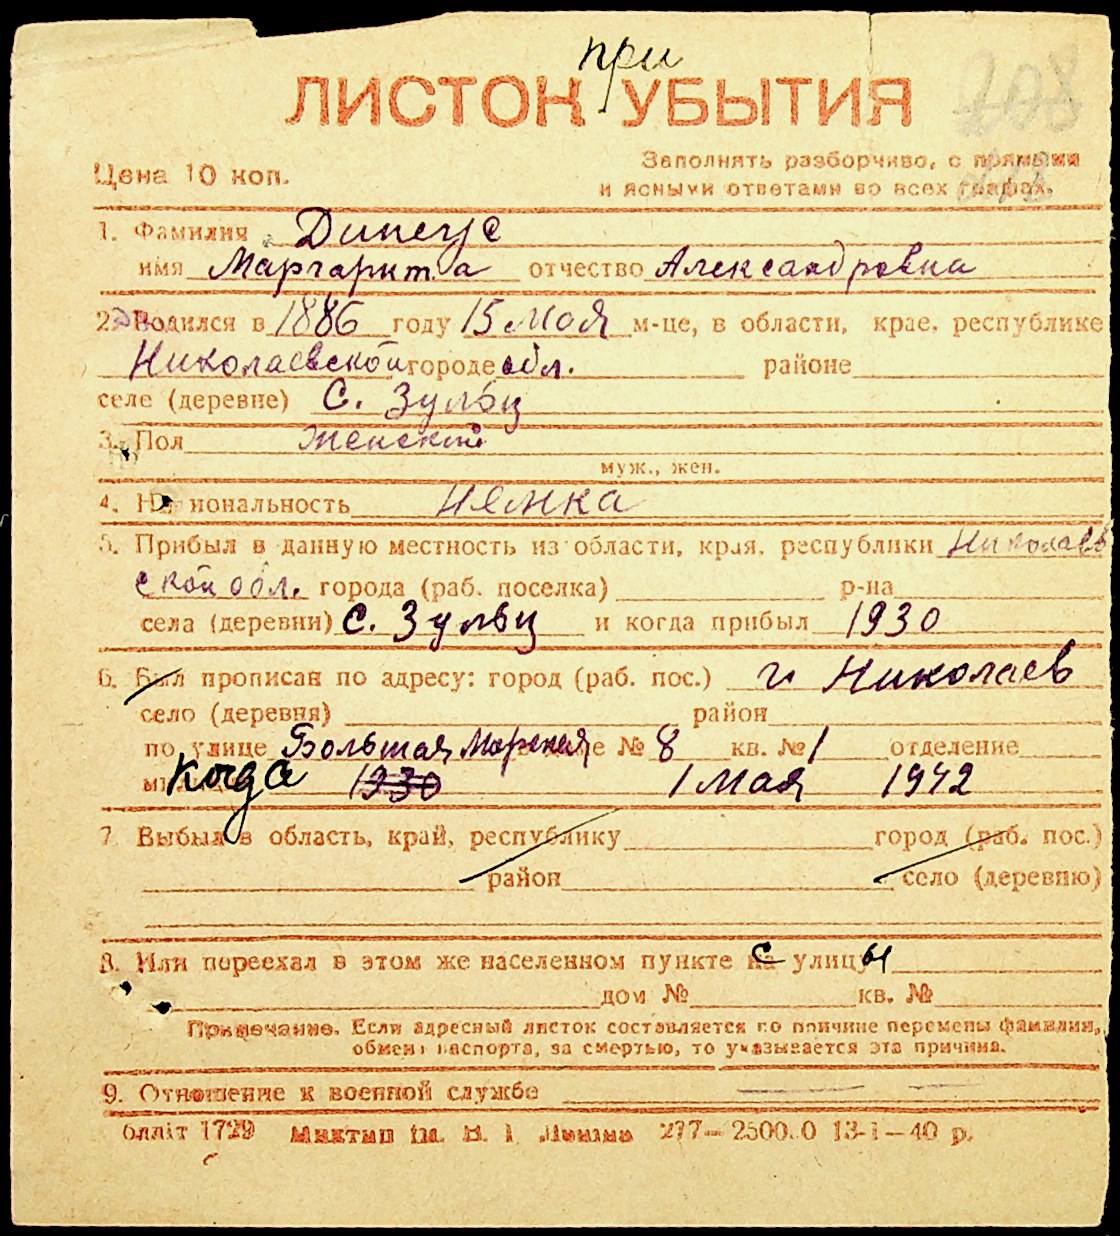 при
ЛИСТОК УБЫТИЯ
208
Цена 10 коп.
Заполнять разборчиво, с прямыми
и ясными ответами во всех графах.
1. Фамилия Дипсус
имя Маргарита отчество Александровна
2. Родился в 1886 году 15 мая м-це, в области, крае, республике
Николаевской городе обл. районе
селе (деревне) С. Зульц
3. Пол Женский
муж., жен.
4. Национальность немка
5. Прибыл в данную местность из области, края, республики Николаев
ской обл. города (раб. поселка) р-на
села (деревни) С. Зульц и когда прибыл 1930
6. Был прописан по адресу: город (раб. пос.) г. Николаев
село (деревня) район
по улице Большая Морская № 8 кв. № 1 отделение
Когда 1930 1 Мая 1942
7. Выбыл в область, край, республику город (раб. пос.)
район село (деревню)
8. Или переехал в этом же населенном пункте с улицы
дом № кв. №
Примечание. Если адресный листок составляется по причине перемены фамилии,
обмена паспорта, за смертью, то указывается эта причина.
9. Отношение к военной службе
блліт 1729 277— 13-I—40 р.